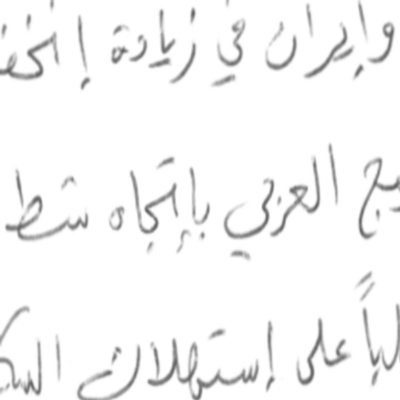 وإيران في زيادة إنخف
يج العربي بإتجاه شط
لباً على إستهلاك السك